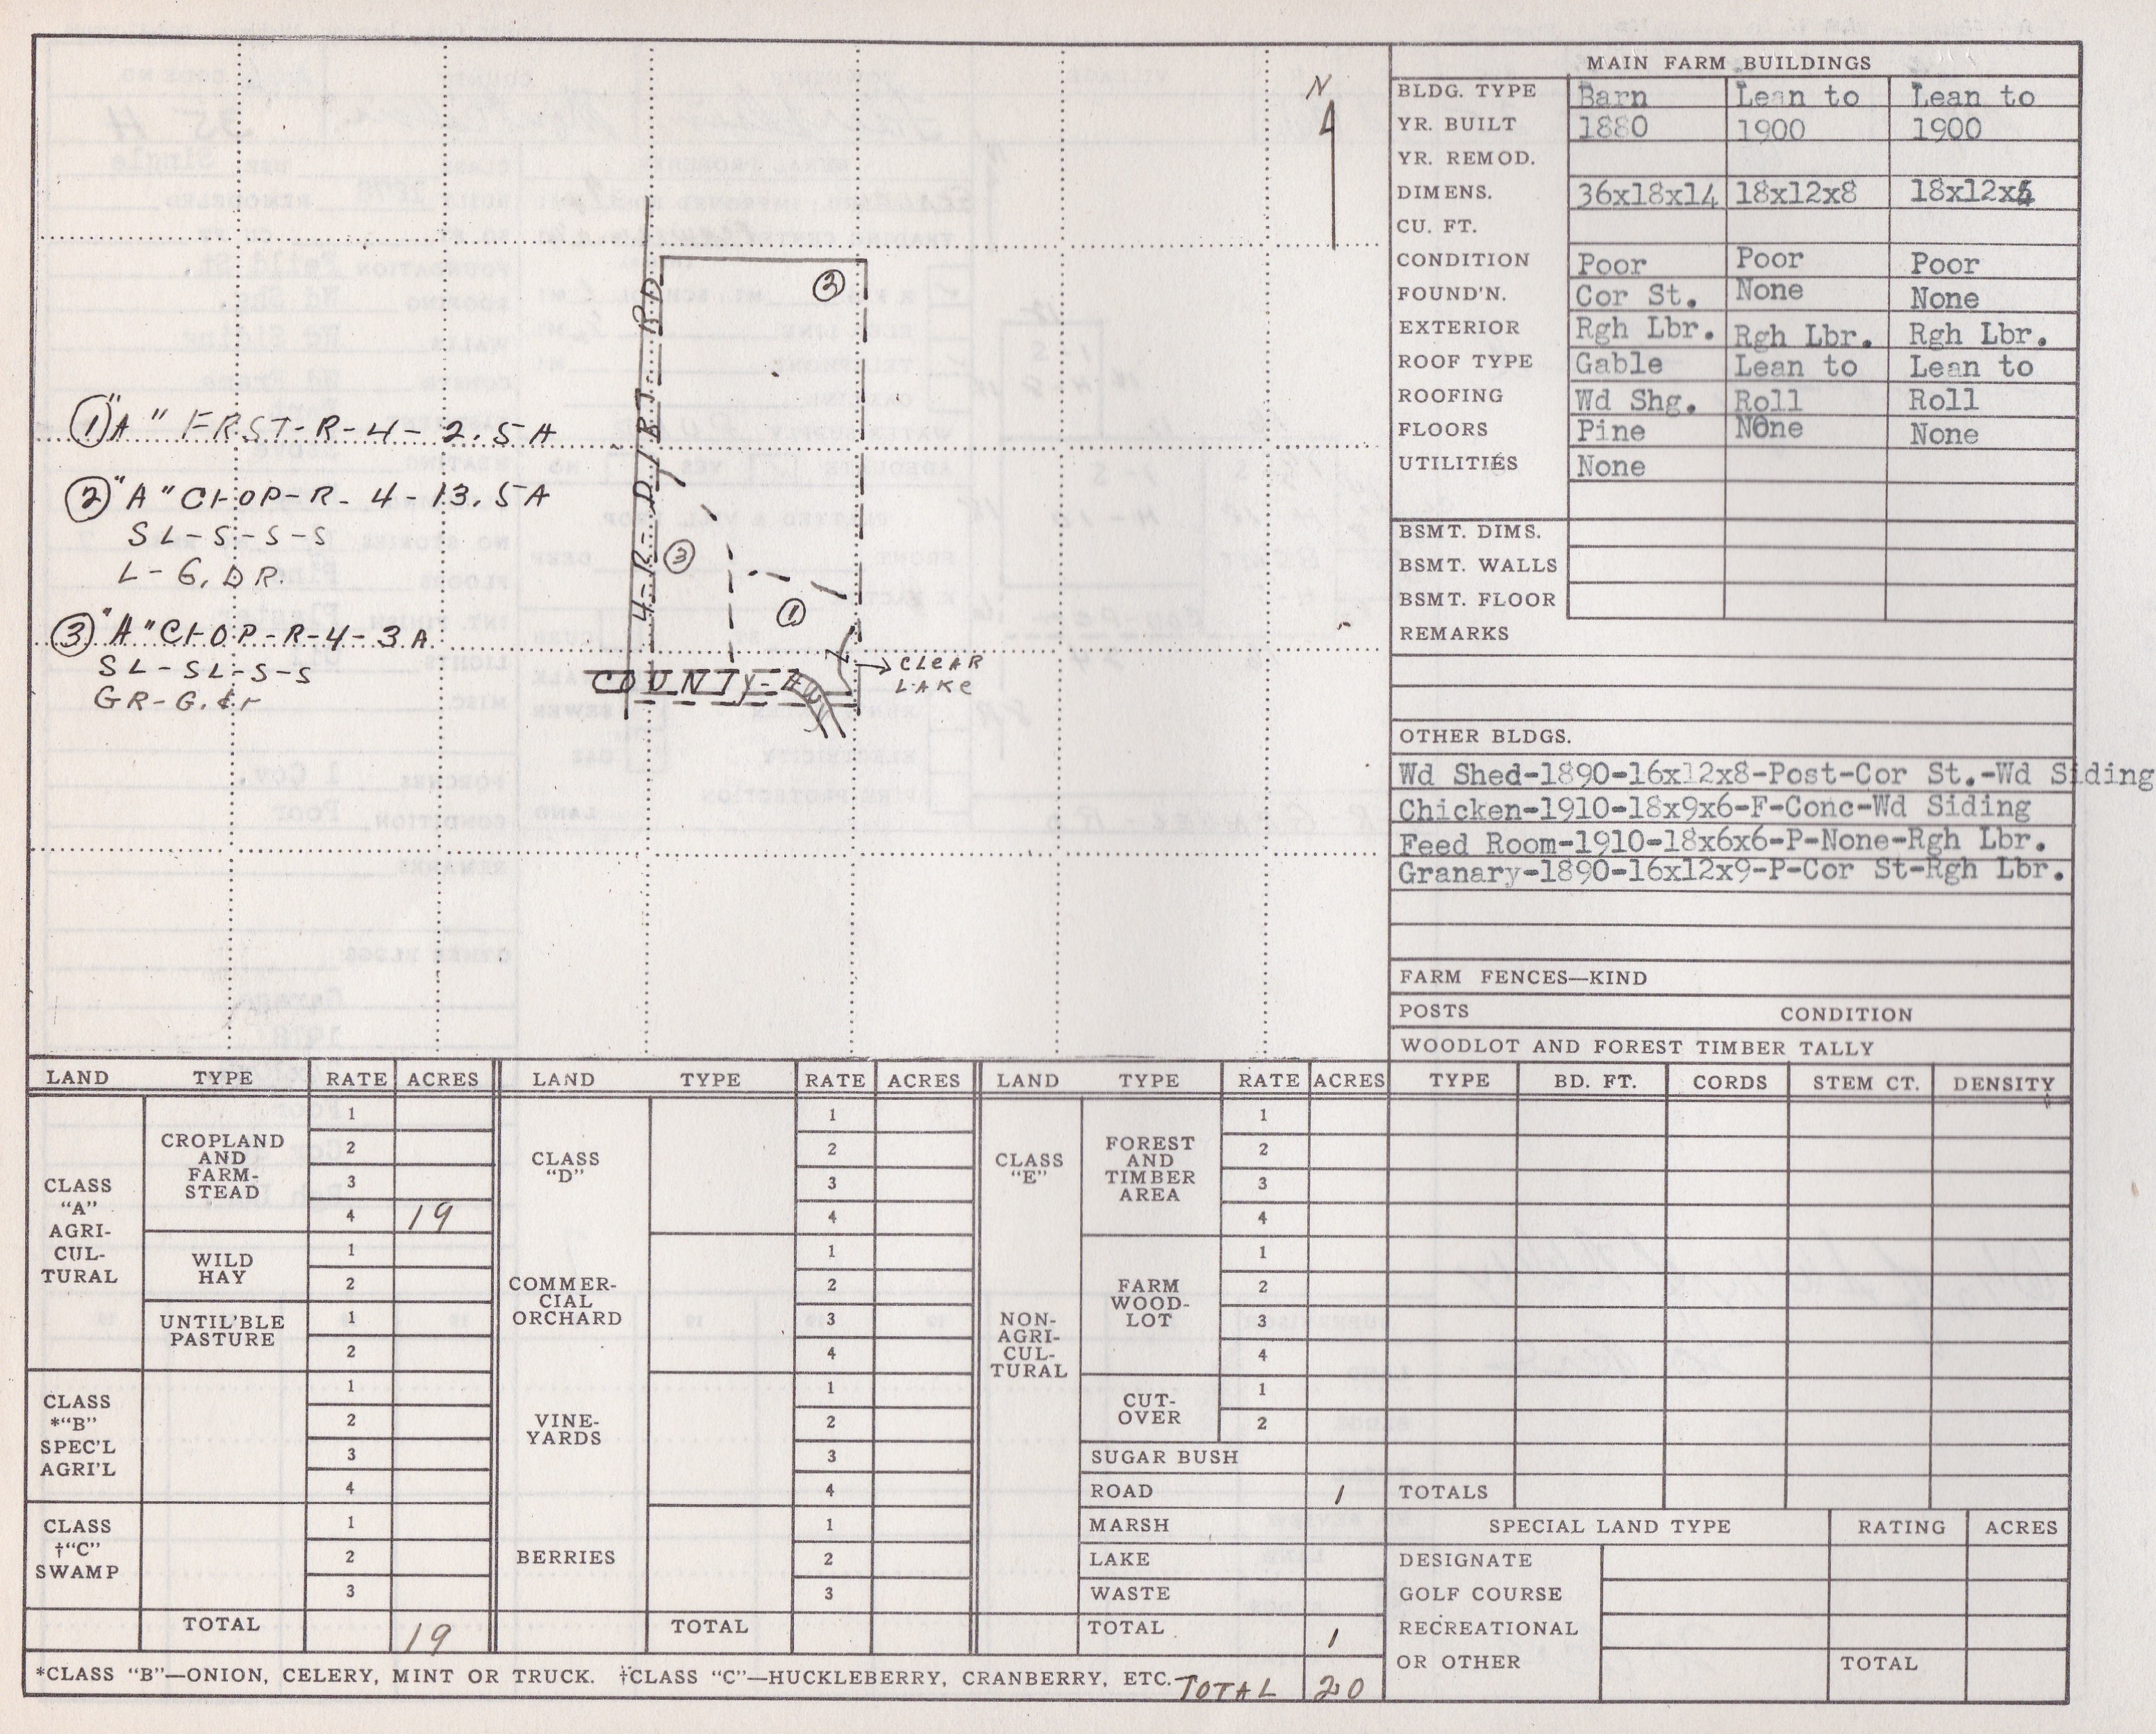 N
4-R-D/RT-RD
②
③
①
COUNTY-RD
CLEAR
LAKE
①"A" FRST-R-4-2.5A
②"A" CROP-R-4-13.5A
SL-S-S-S
L-G, DR.
③"A" CROP-R-4-3A.
SL-SL-S-S
GR-G.
MAIN FARM BUILDINGS
BLDG. TYPE Barn Lean to Lean to
YR. BUILT 1880 1900 1900
YR. REMOD.
DIMENS. 36x18x14 18x12x8 18x12x
CU. FT.
CONDITION Poor Poor Poor
FOUND'N. Cor St. None None
EXTERIOR Rgh Lbr. Rgh Lbr. Rgh Lbr.
ROOF TYPE Gable Lean to Lean to
ROOFING Wd Shg. Roll Roll
FLOORS Pine None None
UTILITIES None
BSMT. DIMS.
BSMT. WALLS
BSMT. FLOOR
REMARKS
OTHER BLDGS.
Wd Shed-1890-16x12x8-Post-Cor St.-Wd Siding
Chicken-1910-18x9x6-F-Conc-Wd Siding
Feed Room-1910-18x6x6-P-None-Rgh Lbr.
Granary-1890-16x12x9-P-Cor St-Rgh Lbr.
FARM FENCES—KIND
POSTS CONDITION
WOODLOT AND FOREST TIMBER TALLY
TYPE BD. FT. CORDS STEM CT. DENSITY
TOTALS
SPECIAL LAND TYPE RATING ACRES
DESIGNATE
GOLF COURSE
RECREATIONAL
OR OTHER TOTAL
LAND TYPE RATE ACRES
CLASS
"A"
AGRI-
CUL-
TURAL
CROPLAND
AND
FARM-
STEAD
1
2
3
4 19
WILD
HAY
1
2
UNTIL'BLE
PASTURE
1
2
CLASS
*"B"
SPEC'L
AGRI'L
1
2
3
4
CLASS
†"C"
SWAMP
1
2
3
TOTAL 19
LAND TYPE RATE ACRES
CLASS
"D"
1
2
3
4
COMMER-
CIAL
ORCHARD
1
2
3
4
VINE-
YARDS
1
2
3
4
BERRIES
1
2
3
TOTAL
LAND TYPE RATE ACRES
CLASS
"E"
NON-
AGRI-
CUL-
TURAL
FOREST
AND
TIMBER
AREA
1
2
3
4
FARM
WOOD-
LOT
1
2
3
4
CUT-
OVER
1
2
SUGAR BUSH
ROAD 1
MARSH
LAKE
WASTE
TOTAL 1
*CLASS "B"—ONION, CELERY, MINT OR TRUCK. †CLASS "C"—HUCKLEBERRY, CRANBERRY, ETC. TOTAL 20